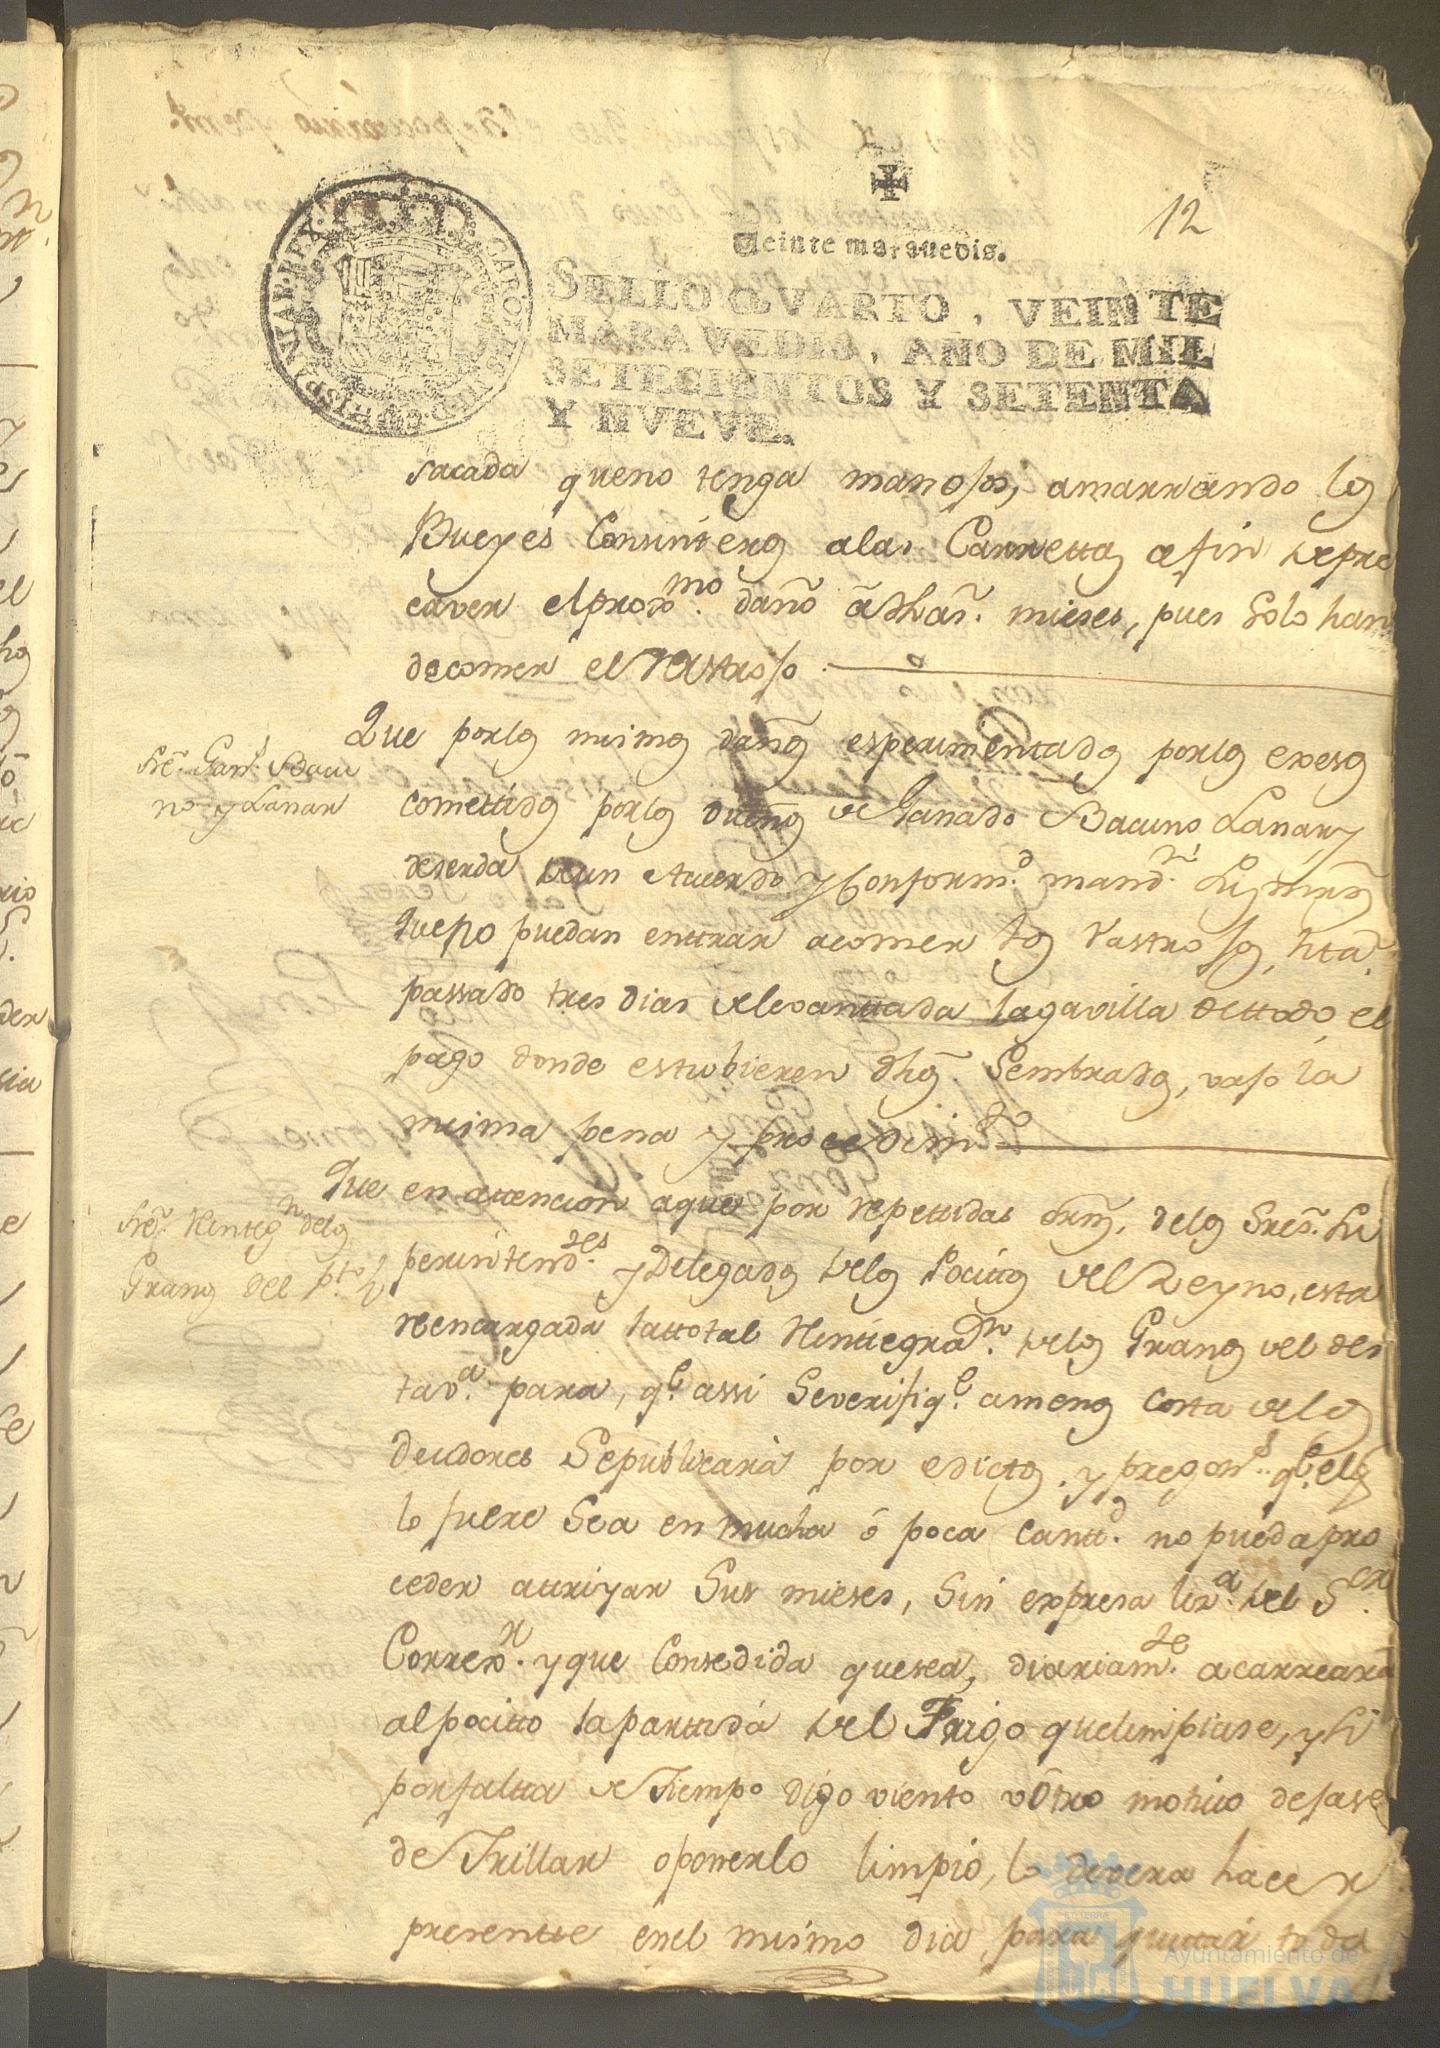 12
Veinte maravedis.
SELLO QVARTO, VEINTE
MARAVEDIS, AÑO DE MIL
SETECIENTOS Y SETENTA
Y NVEVE.
CAROLUS III D G HISPANIAR REX
sacada queno tenga manosos, amarrando los
Bueyes Consinteros alas Carrettas afin depre
caver elproxmo. daño ã dhas. mieses, pues solo han
decomer el rastroso
Que porlos mismos daños esperimentados porlos exesos
comettidos porlos dueños de Ganado Bacuno Lanar y
deserda de un Acuerdo y Conformd. mandn. sus mrds
Queno puedan enttrar acomer los rastrosos, hta.
passado tres dias delevanttada lagavilla dettodo el
pago donde estubieren dhos. Sembrados, vaso la
misma pena y procedimto
Sre. Gando. Bacu
no y Lanar
Que en attencion aque por repettidas ordns. delos Sres. Su
perintendtes. y Delegados delos Pocittos del Reyno, esta
reencargada lattotal Reinttegran. delos Granos del des
tava. para, qe. assi Severifiqe. amenos costa delos
deudores Sepublicará por edictos. y pregons. qe. elq
lo fuere Sea en mucha ó poca canttd. no pueda pro
ceder attriyar Sus mieses, Sin expresa liza. del Sor.
Correxr. y que Consedida quesea, diariamte. acarreara
alpocitto laparttida del Trigo quelimpiase, y Si
porfaltta de Tiempo digo viento u ôtro motivo dejase
de Trillar oponerlo limpio, lo devera hacer
presentte enel mismo dia, para quittar toda
Sre. Reintegn delos
Granos del pto.
Ayuntamiento de
HUELVA